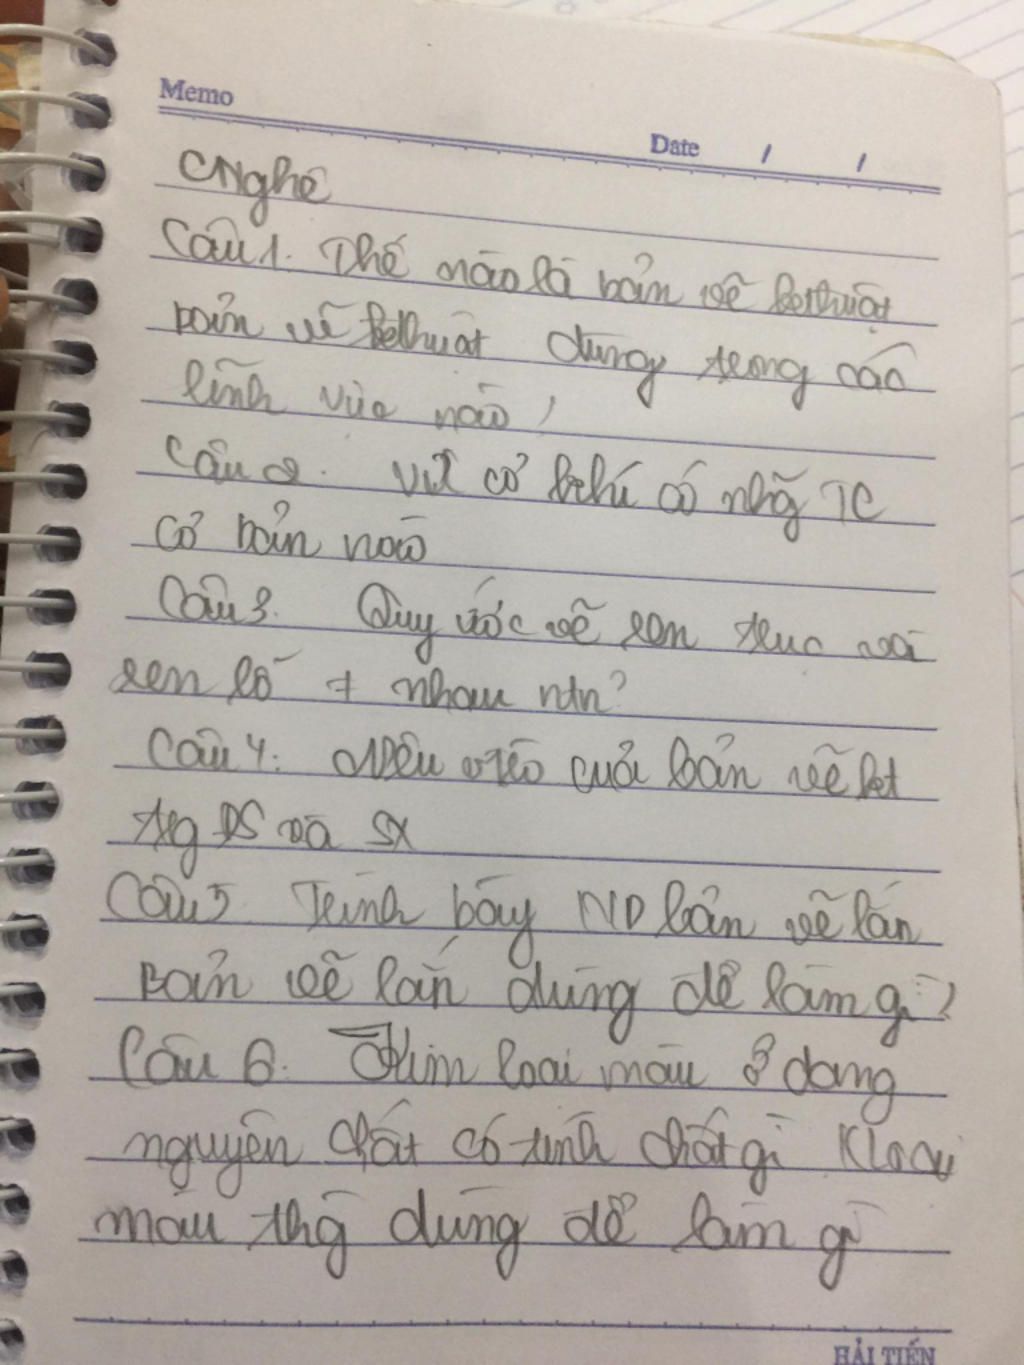 Memo
Date / /
CNghệ
Câu 1. Thế nào là bản vẽ kĩ thuật
bản vẽ kĩ thuật dùng trong các
lĩnh vực nào?
Câu 2. Vl cơ khí có nhữg TC
cơ bản nào
Câu 3. Quy ước vẽ ren trục và
ren lỗ ≠ nhau ntn?
Câu 4: Nêu vtrò của bản vẽ kt
trg ĐS và SX
Câu 5 Trình bày ND bản vẽ lắp
Bản vẽ lắp dùng để làm gì?
Câu 6. Kim loại màu ở dạng
nguyên chất có tính chất gì Kloại
màu thg dùng để làm gì
HẢI TIẾN